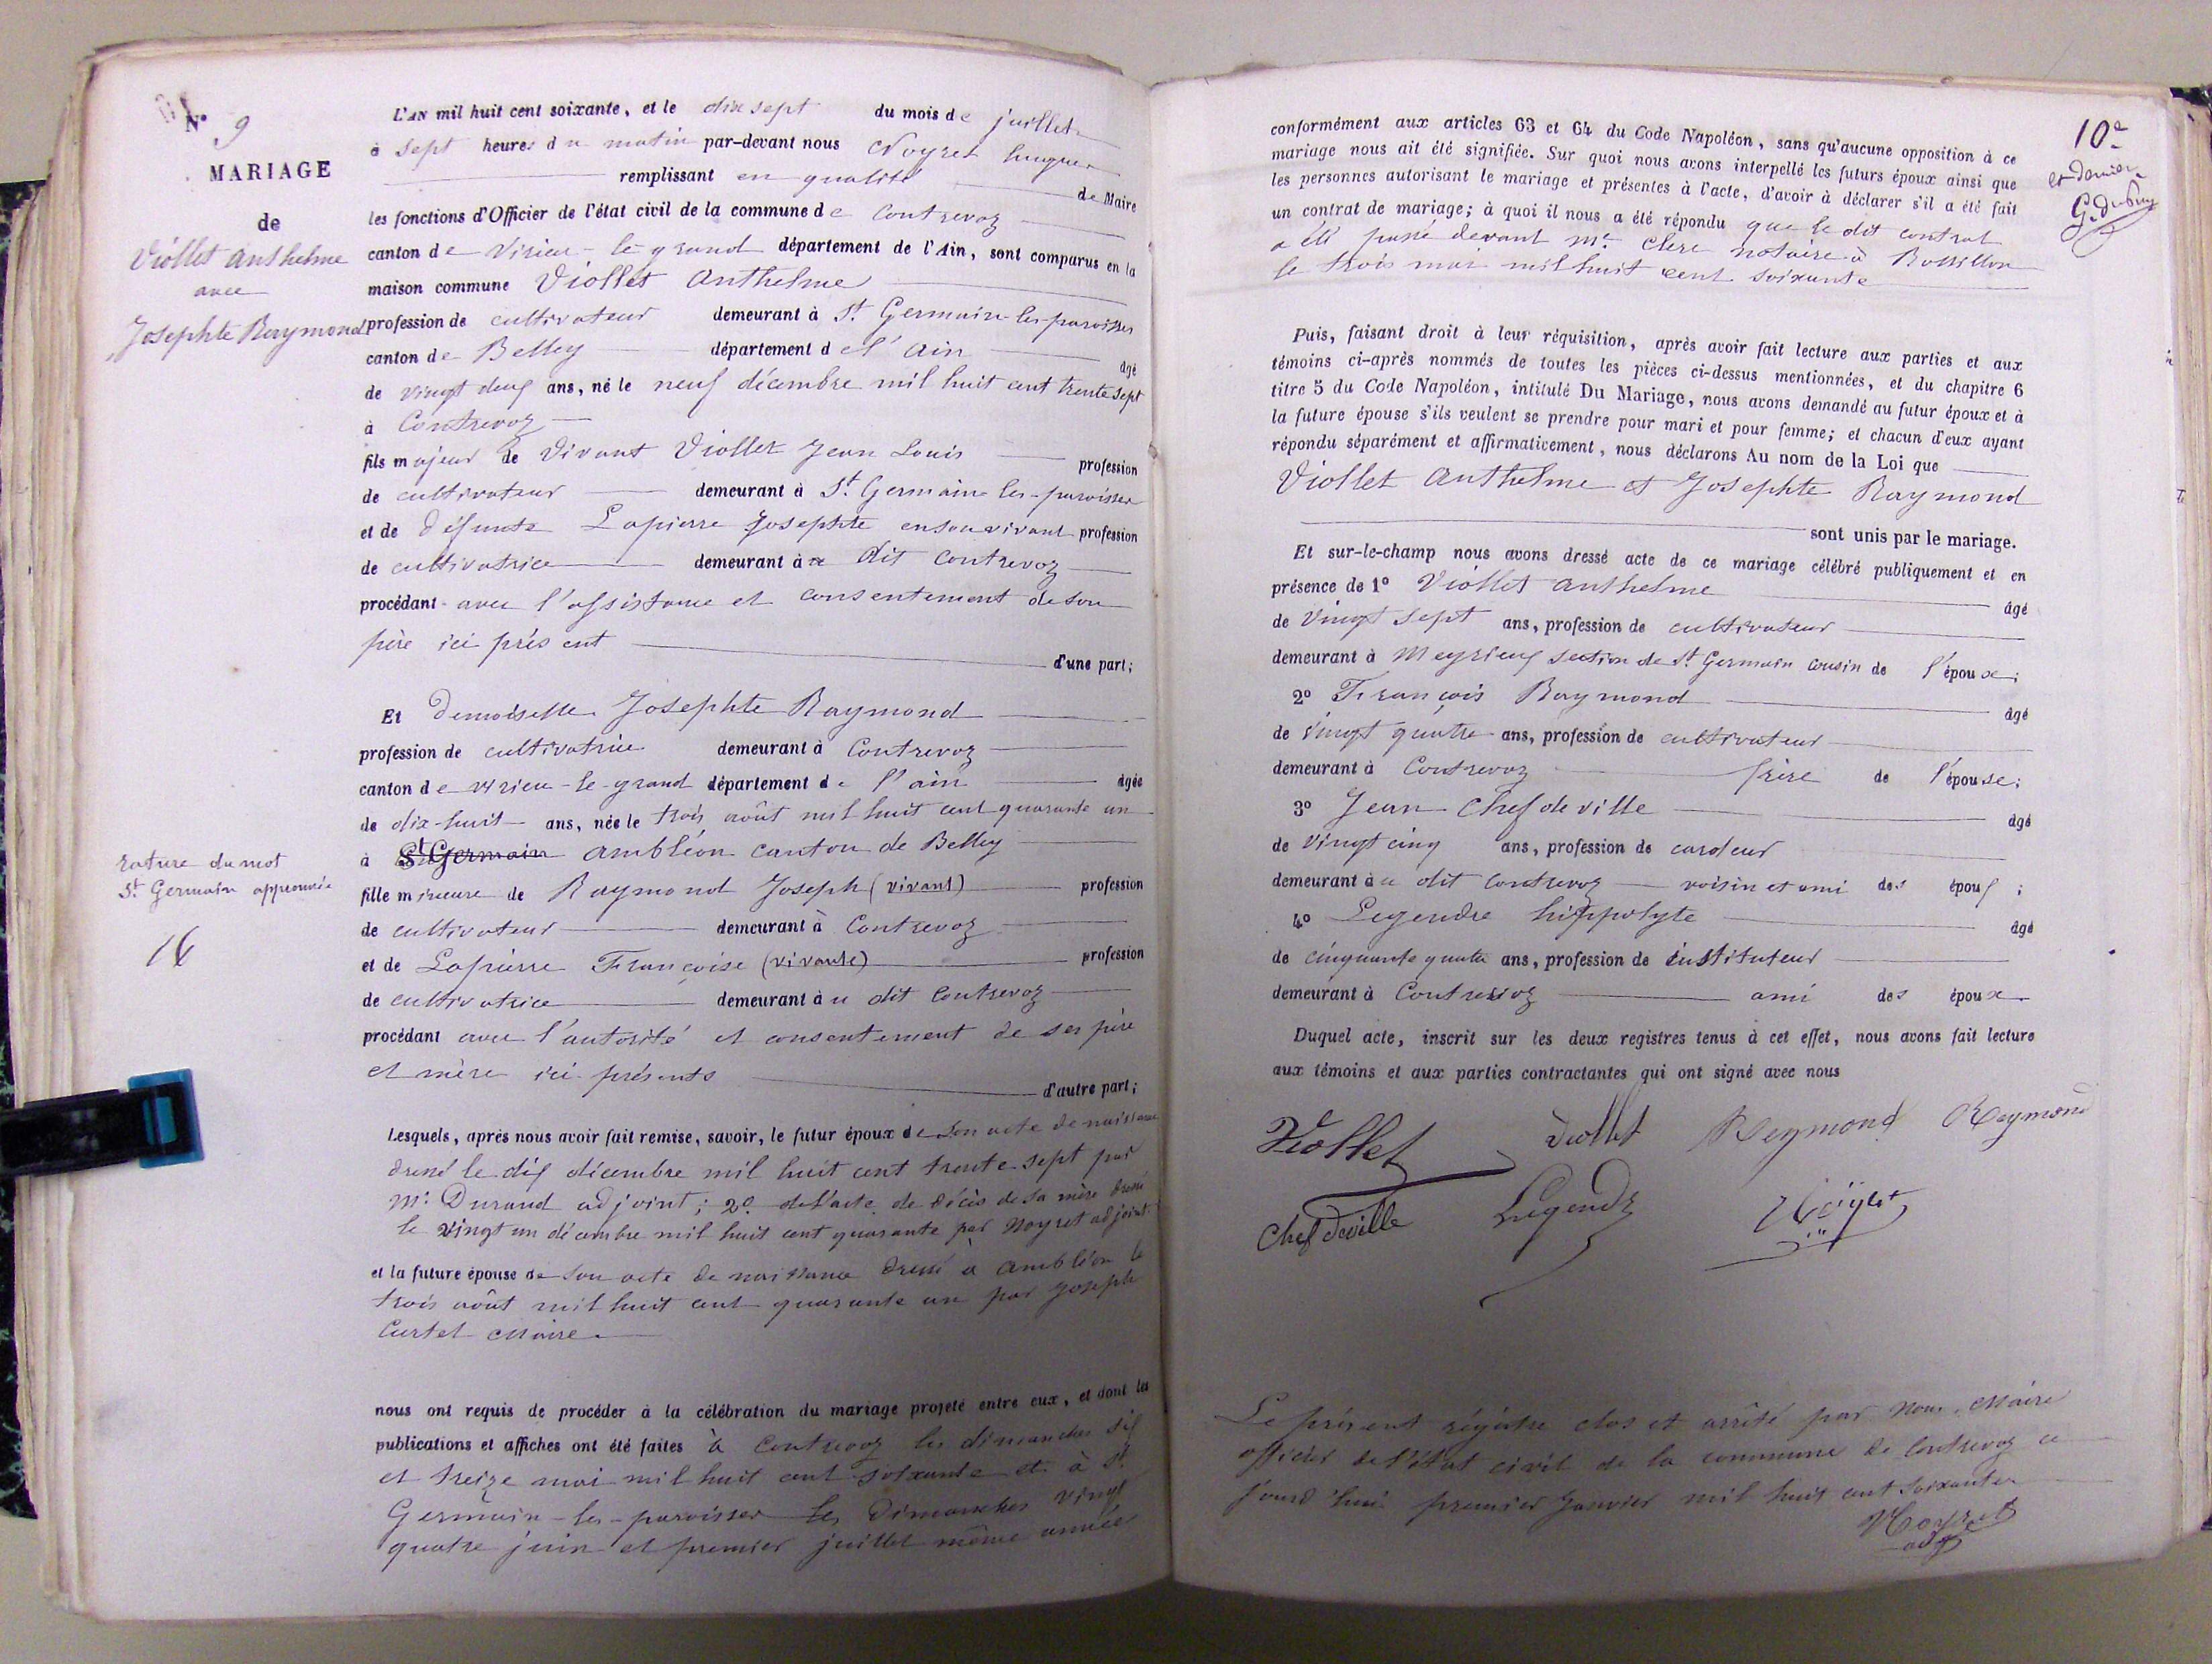 N° 9
MARIAGE
de
Viollet Anthelme
avec
Josephte Raymond
L'AN mil huit cent soixante, et le dix sept du mois de juillet
à sept heures du matin par-devant nous Noyret hugues
remplissant en qualité de Maire
les fonctions d'Officier de l'état civil de la commune de Contrevoz
canton de Virieu-le-grand département de l'Ain, sont comparus en la
maison commune Viollet Anthelme
profession de cultivateur demeurant à St Germain-les-paroisses
canton de Belley département de l'Ain âgé
de vingt deux ans, né le neuf décembre mil huit cent trente sept
à Contrevoz
fils majeur de Vivant Viollet Jean Louis profession
de cultivateur demeurant à St. Germain-les-paroisses
et de défunte Lapierre Josephte en son vivant profession
de cultivatrice demeurant à u dit Contrevoz
procédant avec l'assistance et consentement de son
père ici présent d'une part;
Et Demoiselle Josephte Raymond
profession de cultivatrice demeurant à Contrevoz
canton de virieu-le-grand département de l'ain âgée
de dix-huit ans, née le trois août mil huit cent quarante un
à St Germain ambléon canton de Belley
rature du mot
St Germain approuvée
fille mineure de Raymond Joseph (vivant) profession
de cultivateur demeurant à Contrevoz
et de Lapierre Françoise (vivante) profession
de cultivatrice demeurant à u dit Contrevoz
procédant avec l'autorité et consentement de ses père
et mère ici présents d'autre part;
Lesquels, après nous avoir fait remise, savoir, le futur époux de son acte de naissance
dressé le dix décembre mil huit cent trente-sept par
Mr Durand adjoint; 2° de l'acte de décès de sa mère dressé
le vingt un décembre mil huit cent quarante par Noyret adjoint
et la future épouse de son acte de naissance dressé à ambléon le
trois août mil huit cent quarante un par Joseph
Curtet Maire.
nous ont requis de procéder à la célébration du mariage projeté entre eux, et dont les
publications et affiches ont été faites à Contrevoz les dimanches six
et treize mai mil huit cent soixante et à St
Germain-les-paroisses les Dimanches vingt
quatre juin et premier juillet même année
10e
et dernier
conformément aux articles 63 et 64 du Code Napoléon, sans qu'aucune opposition à ce
mariage nous ait été signifiée. Sur quoi nous avons interpellé les futurs époux ainsi que
les personnes autorisant le mariage et présentes à l'acte, d'avoir à déclarer s'il a été fait
un contrat de mariage; à quoi il nous a été répondu que le dit contrat
a été passé devant Me Clerc notaire à Rossillon
le trois mai mil huit cent soixante
Puis, faisant droit à leur réquisition, après avoir fait lecture aux parties et aux
témoins ci-après nommés de toutes les pièces ci-dessus mentionnées, et du chapitre 6
titre 5 du Code Napoléon, intitulé Du Mariage, nous avons demandé au futur époux et à
la future épouse s'ils veulent se prendre pour mari et pour femme; et chacun d'eux ayant
répondu séparément et affirmativement, nous déclarons Au nom de la Loi que
Viollet Anthelme et Josephte Raymond
sont unis par le mariage.
Et sur-le-champ nous avons dressé acte de ce mariage célébré publiquement et en
présence de 1° Viollet anthelme âgé
de Vingt sept ans, profession de cultivateur
demeurant à Meyrieux section de St Germain cousin de l'épouse;
2° François Raymond âgé
de vingt quatre ans, profession de cultivateur
demeurant à Contrevoz frère de l'épouse;
3° Jean Chefdeville âgé
de Vingt cinq ans, profession de cardeur
demeurant à u dit Contrevoz voisin et ami des époux;
4° Legendre hippolyte âgé
de cinquante quatre ans, profession de instituteur
demeurant à Contrevoz ami des époux
Duquel acte, inscrit sur les deux registres tenus à cet effet, nous avons fait lecture
aux témoins et aux parties contractantes qui ont signé avec nous
Viollet Viollet Reymond Raymond
Chefdeville Legendre Noÿret
Le présent régistre clos et arrêté par Nous, Maire
officier de l'état civil de la commune de Contrevoz ce
jourd'hui premier Janvier mil huit cent soixante
Noyret
adj